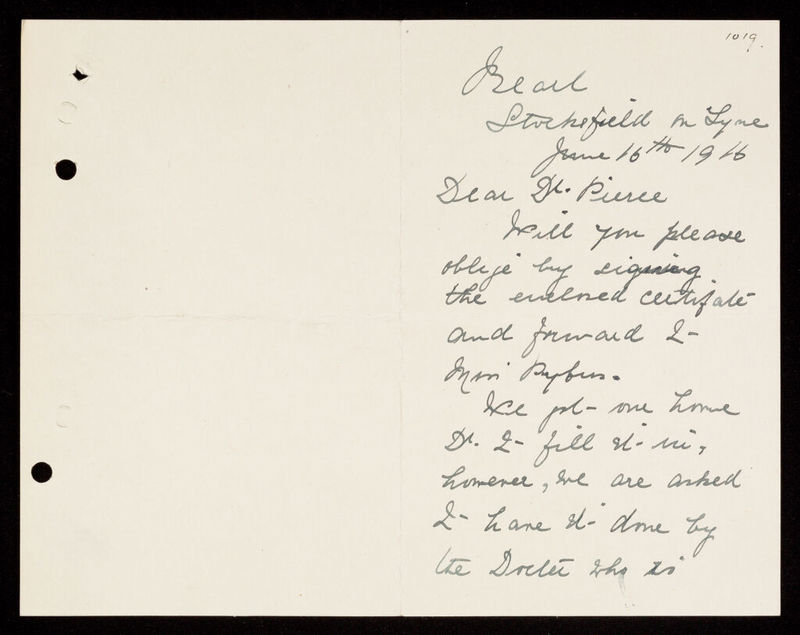 1019.
Stocksfield on Tyne
June 16th 1916
Dear Dr. Pierce
Will you please
oblige by signing
the enclosed certifate
and forward to
Miss Pybus.
We got one home
Dr. to fill it in,
however, we are asked
to have it done by
the Doctor who is